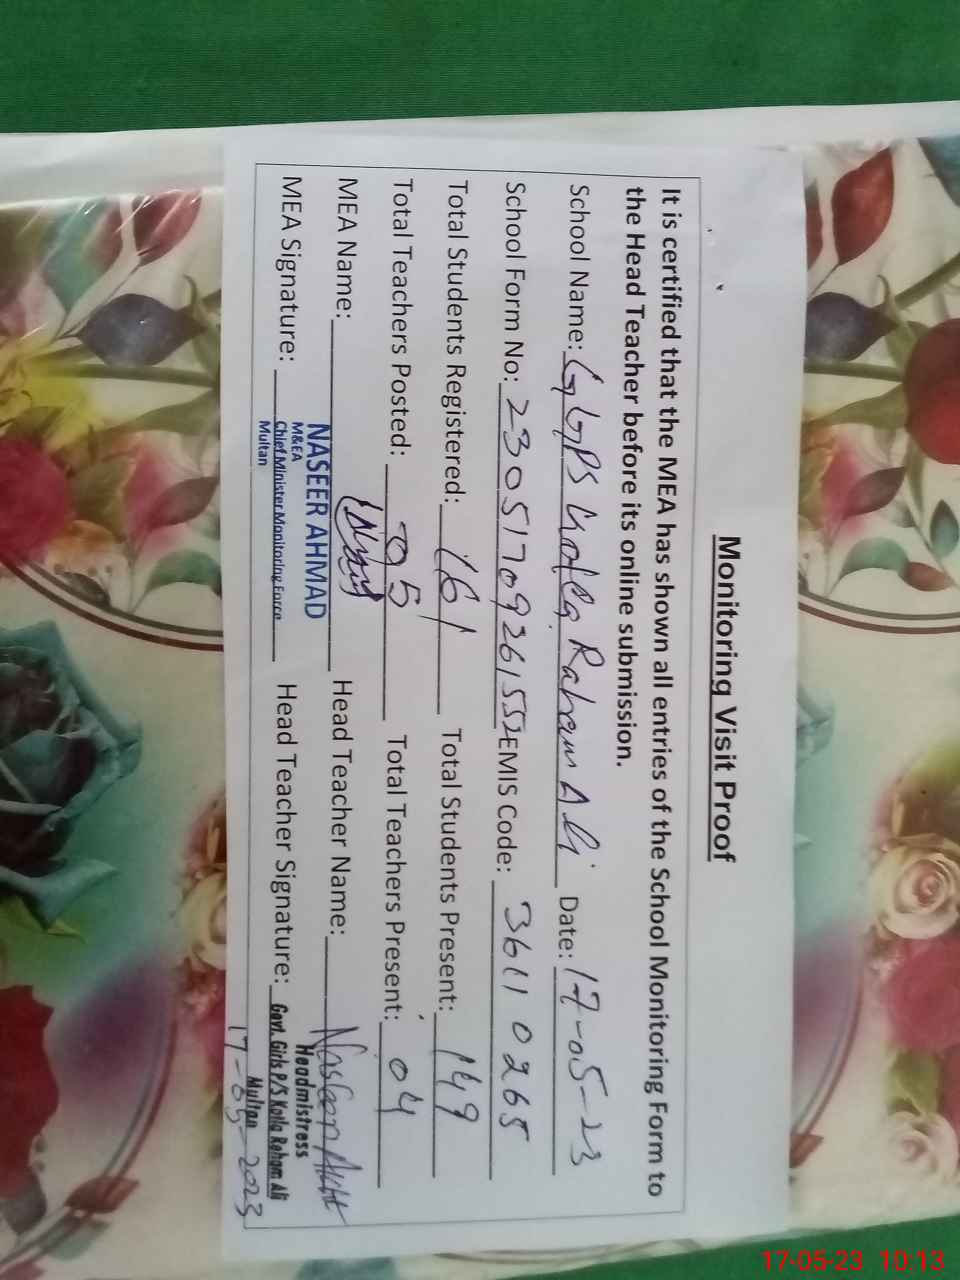 Monitoring Visit Proof
It is certified that the MEA has shown all entries of the School Monitoring Form to
the Head Teacher before its online submission.
School Name: GGPS Kotla Raham Ali Date: 17-05-23
School Form No: 23051709261552 EMIS Code: 36110265
Total Students Registered: 161 Total Students Present: 149
Total Teachers Posted: 05 Total Teachers Present: 04
MEA Name: Head Teacher Name: Nasreen Akhtar
NASEER AHMAD
M&EA
Headmistress
MEA Signature: Chief Minister Monitoring Force Head Teacher Signature: Govt. Girls P/S Kotla Raham Ali
Multan Multan
17-05-2023
17-05-23 10:13